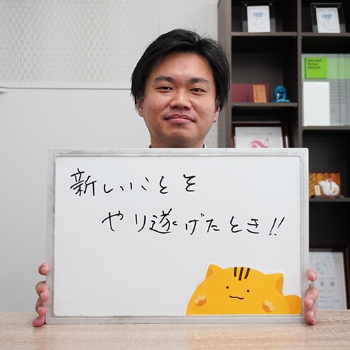 新しいことを
やり遂げたとき!!